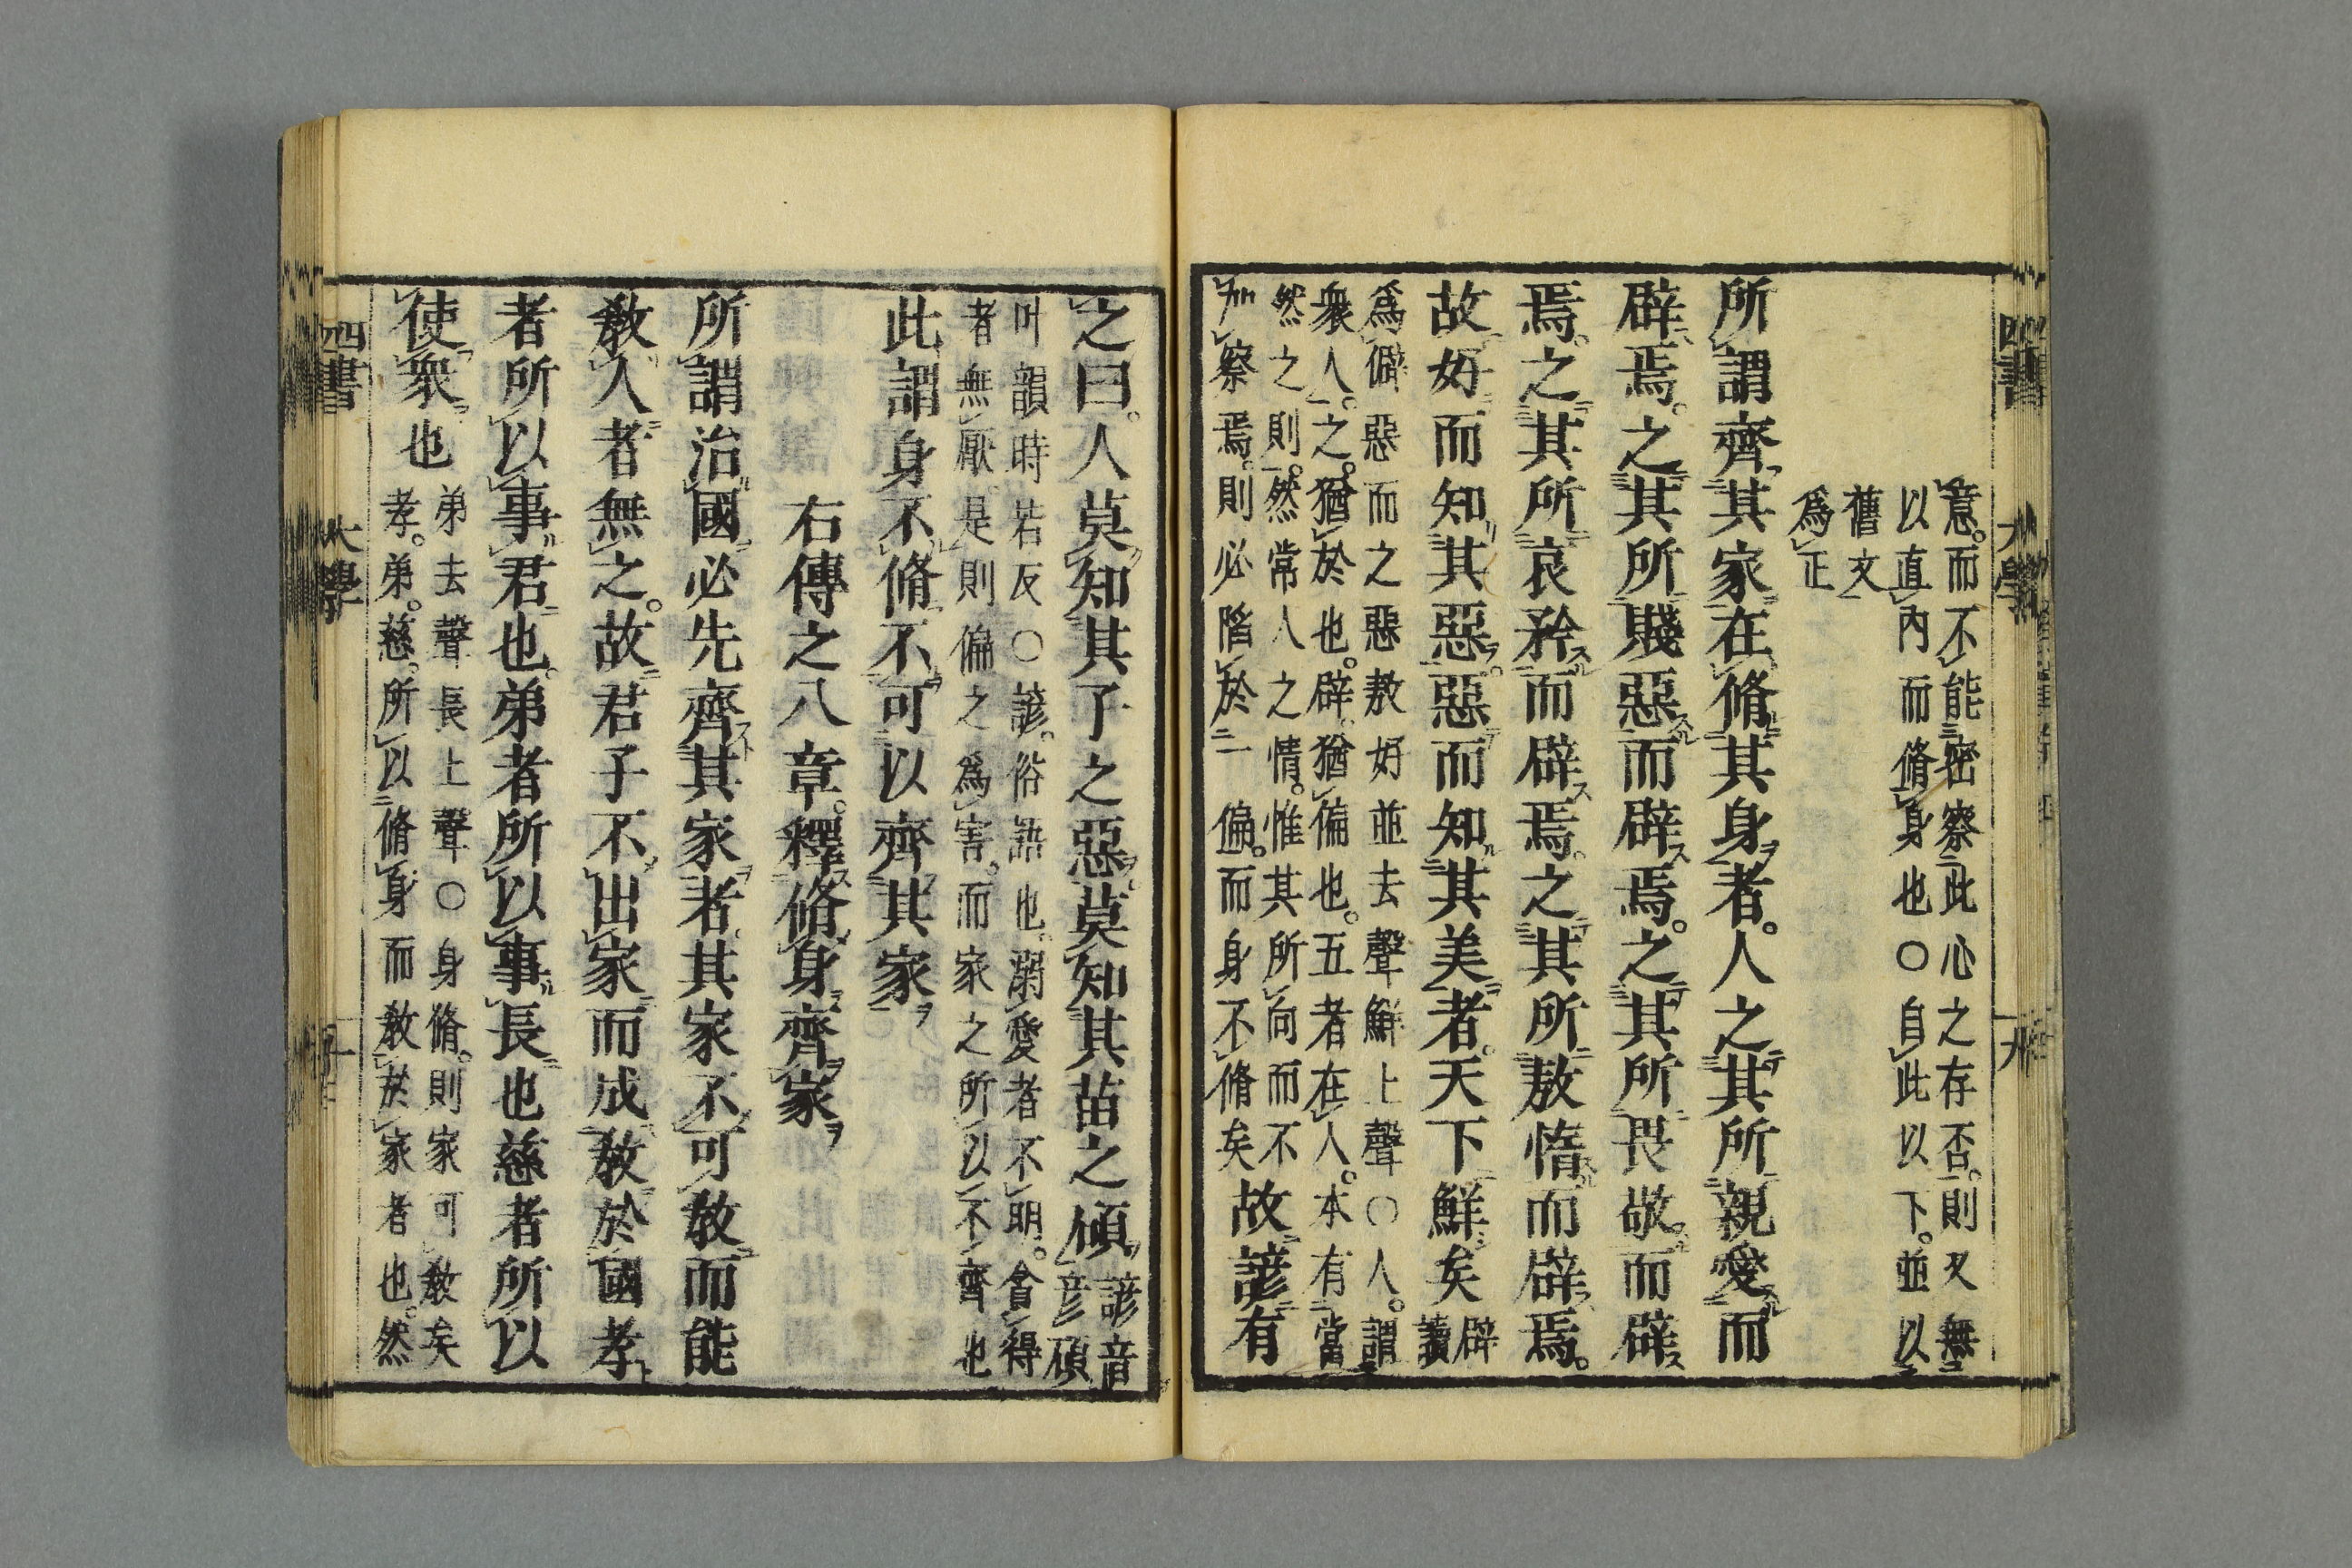 意。而不能密察此心之存否。則又無
以直内而脩身也○自此以下。並以
舊文
爲正
所謂齊其家在脩其身者。人之其所親愛而
辟焉。之其所賤惡而辟焉。之其所畏敬。而辟
焉。之其所哀矜而辟焉。之其所敖惰而辟焉。
故好而知其惡。惡而知其美者。天下鮮矣
辟讀
爲僻惡而之惡敖好並去聲鮮上聲○人。謂
衆人。之。猶於也。辟。猶偏也。五者在人。本有當
然之則。然常人之情。惟其所向而不
加察焉。則必陷於一偏。而身不脩矣
故諺有
之曰。人莫知其子之惡。莫知其苗之碩
諺音
彦碩
叶韻時若反○諺。俗語也。溺愛者不明。貪得
者無厭。是則偏之爲害。而家之所以不齊也
此謂身不脩不可以齊其家
右傳之八章。釋脩身齊家
所謂治國必先齊其家者。其家不可教而能
教人者無之。故君子不出家而成教於國孝
者所以事君也。弟者所以事長也慈者所以
使衆也
弟去聲長上聲○身脩。則家可教矣
孝。弟。慈。所以脩身而教於家者也。然
四書 大學 十九
四書 大學